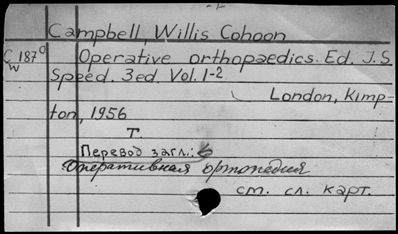 Campbell, Willis Cohoon
C 187⁰ Operative orthopaedics. Ed. J.S
W Speed. 3ed. Vol. 1-2
London, Kimp-
ton, 1956
Т.
Перевод загл.:
Оперативная ортопедия
см. сл. карт.